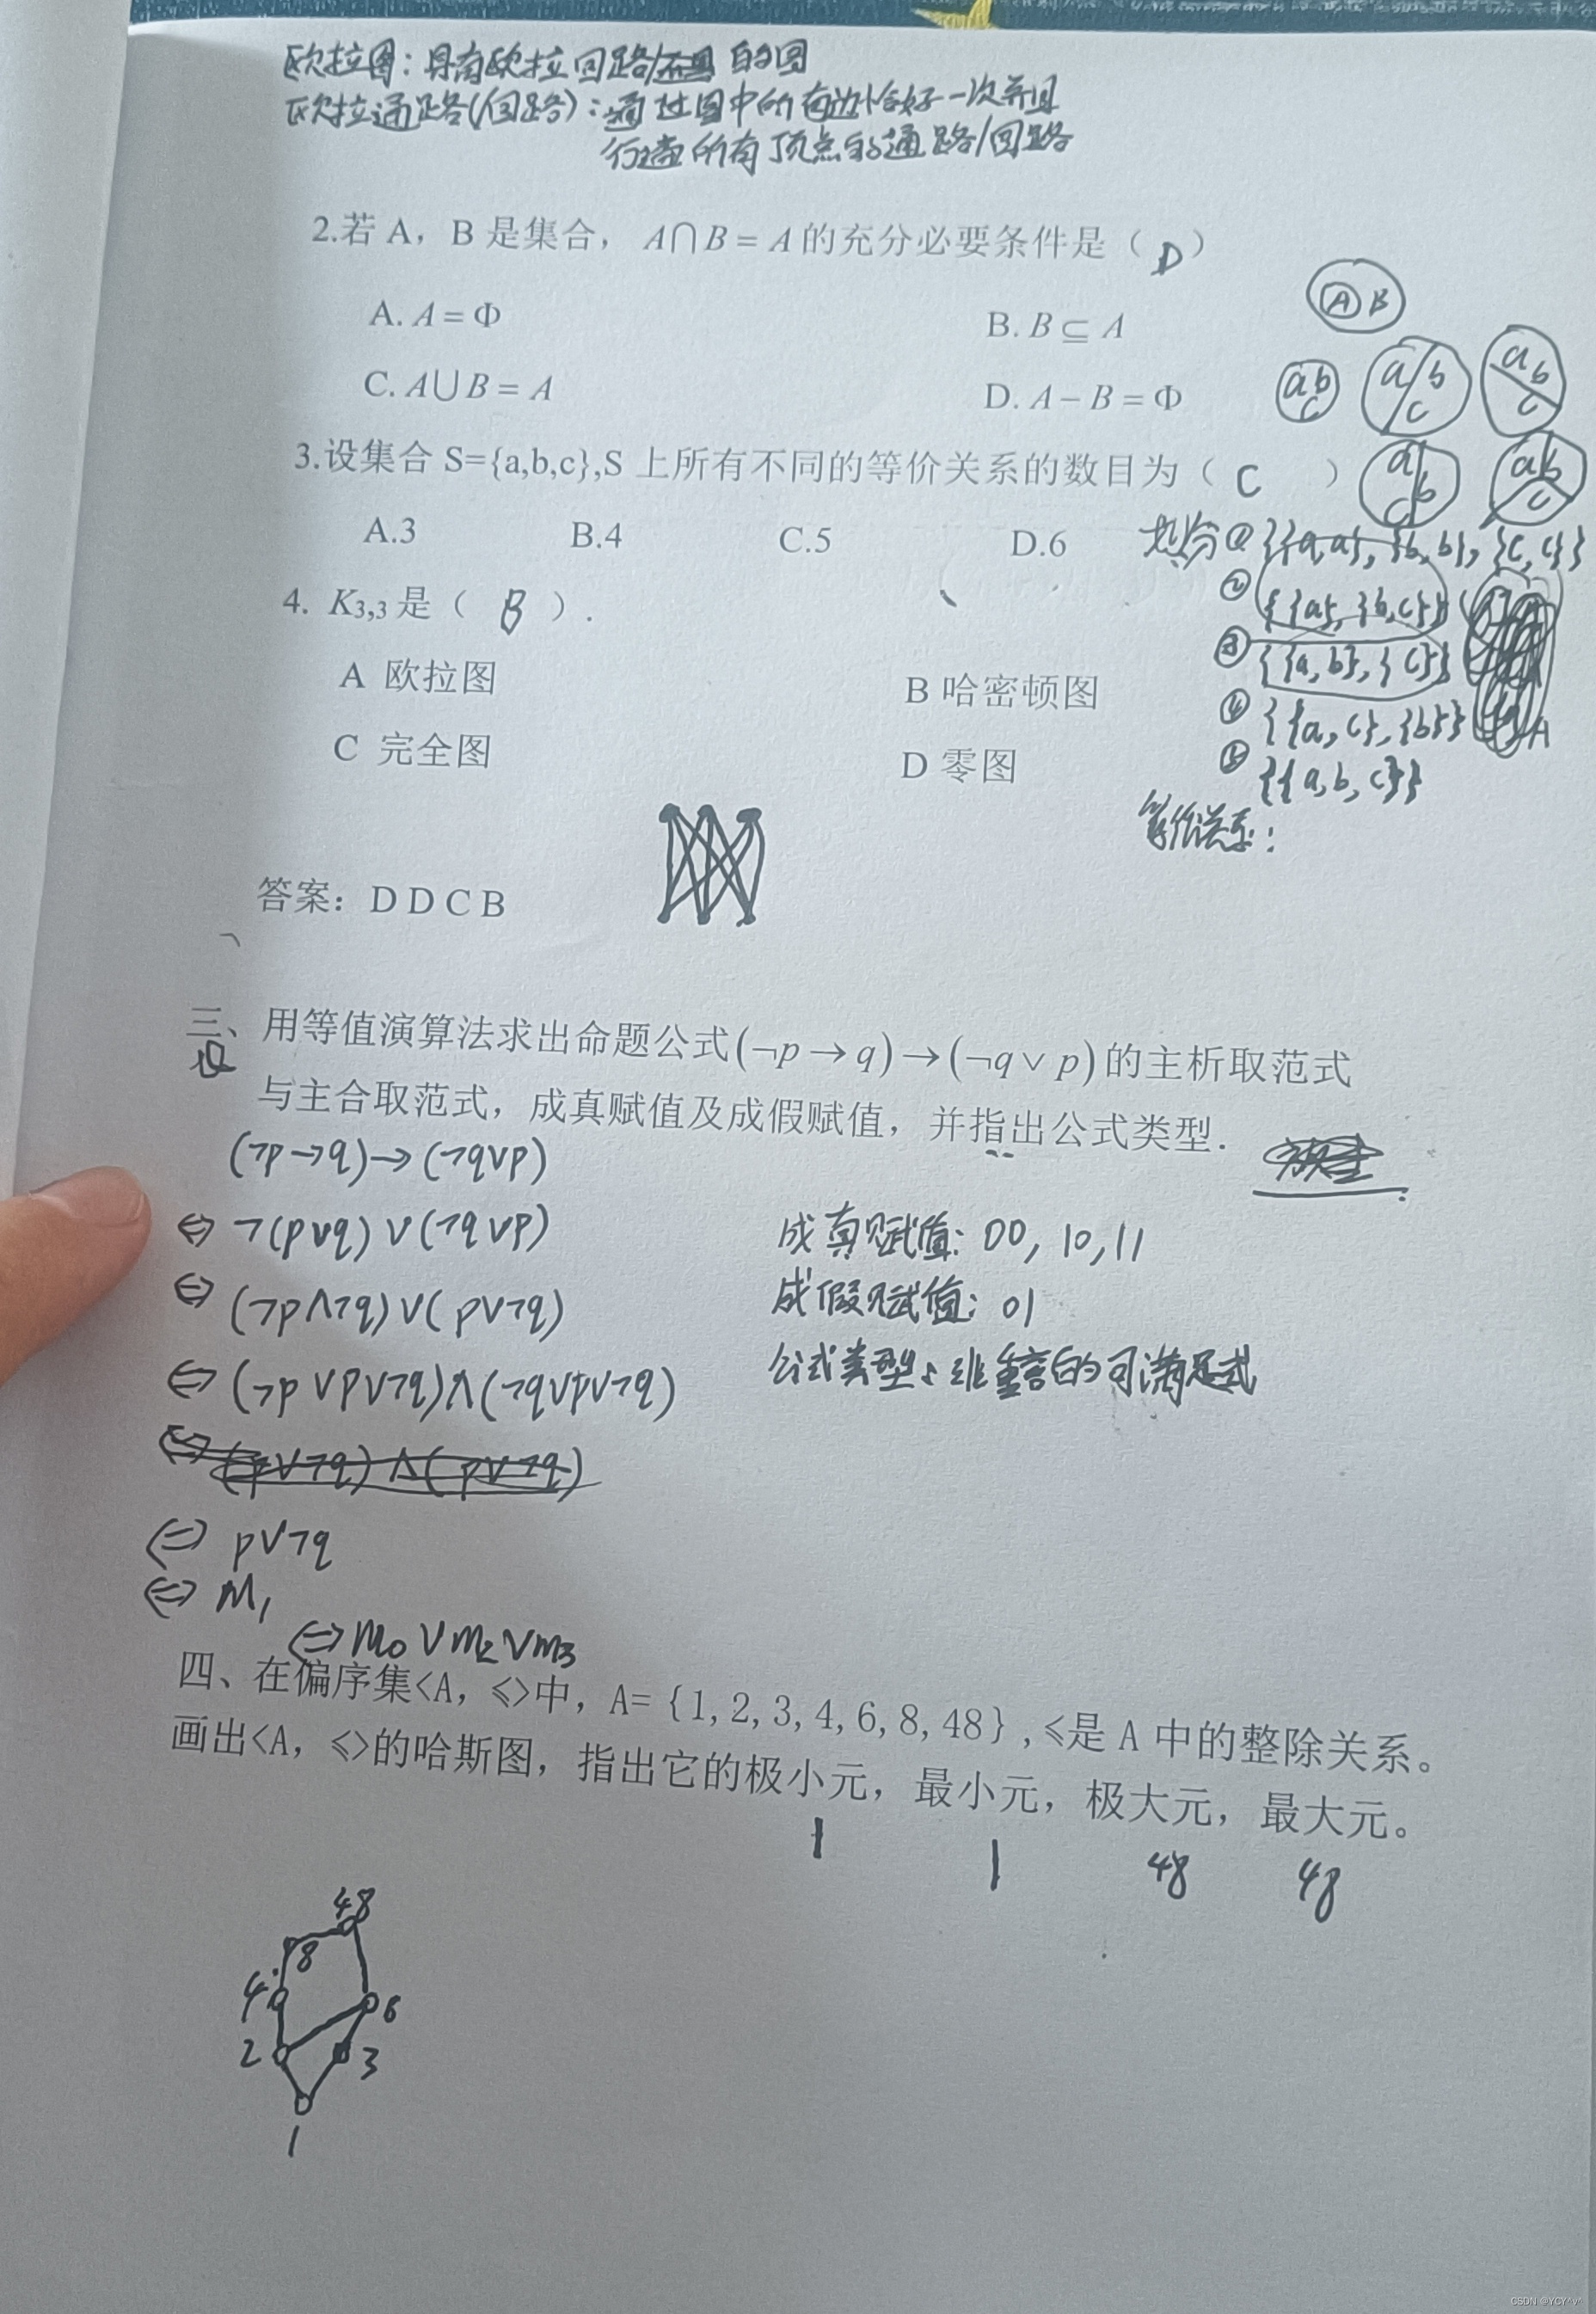 欧拉图：具有欧拉回路的图
欧拉通路(回路)：通过图中所有边恰好一次并且
行遍所有顶点的通路/回路
2.若 A，B 是集合， A∩B = A 的充分必要条件是（ D ）
A. A = Φ
B. B ⊆ A
C. A∪B = A
D. A − B = Φ
A B
a b c
a b c
a b c
a b c
a b c
3.设集合 S={a,b,c},S 上所有不同的等价关系的数目为（ C ）
A.3 B.4 C.5 D.6
划分① {{a,a}, {b,b}, {c,c}}
② {{a}, {b,c}}
③ {{a,b}, {c}}
④ {{a,c}, {b}}
⑤ {{a,b,c}}
等价关系：
4. K3,3 是（ B ）.
A 欧拉图
B 哈密顿图
C 完全图
D 零图
答案：D D C B
三、用等值演算法求出命题公式(¬p → q) → (¬q ∨ p)的主析取范式
与主合取范式，成真赋值及成假赋值，并指出公式类型.
(¬p→q)→(¬q∨p)
⇔ ¬(p∨q)∨(¬q∨p)
⇔ (¬p∧¬q)∨(p∨¬q)
⇔ (¬p∨p∨¬q)∧(¬q∨p∨¬q)
⇔ (p∨¬q)∧(p∨¬q)
⇔ p∨¬q
⇔ M1
⇔ m0∨m2∨m3
成真赋值：00, 10, 11
成假赋值：01
公式类型：非重言的可满足式
四、在偏序集<A，≤>中，A={1,2,3,4,6,8,48},≤是 A 中的整除关系。
画出<A，≤>的哈斯图，指出它的极小元，最小元，极大元，最大元。
1 1 48 48
48
8
4 6
2 3
1
CSDN @YCY^v^